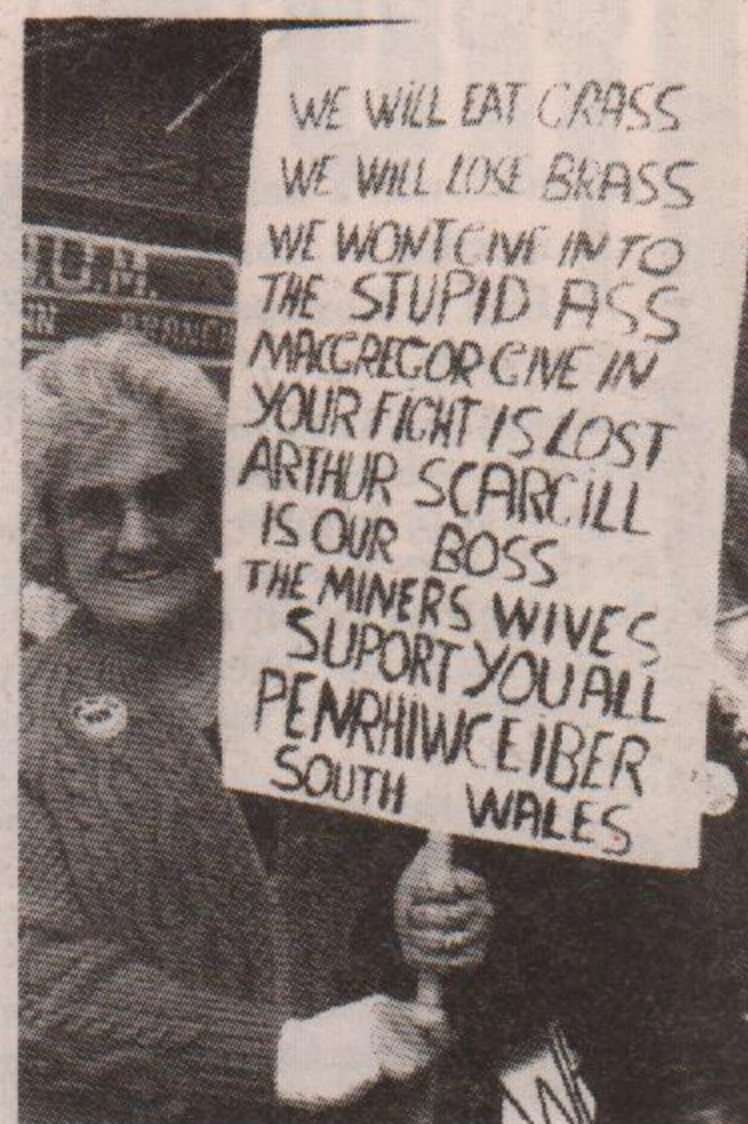 WE WILL EAT GRASS
WE WILL LOSE BRASS
WE WONT GIVE IN TO
THE STUPID ASS
MACGREGOR GIVE IN
YOUR FIGHT IS LOST
ARTHUR SCARGILL
IS OUR BOSS
THE MINERS WIVES
SUPORT YOU ALL
PENRHIWCEIBER
SOUTH WALES
.U.M.
BRANCH